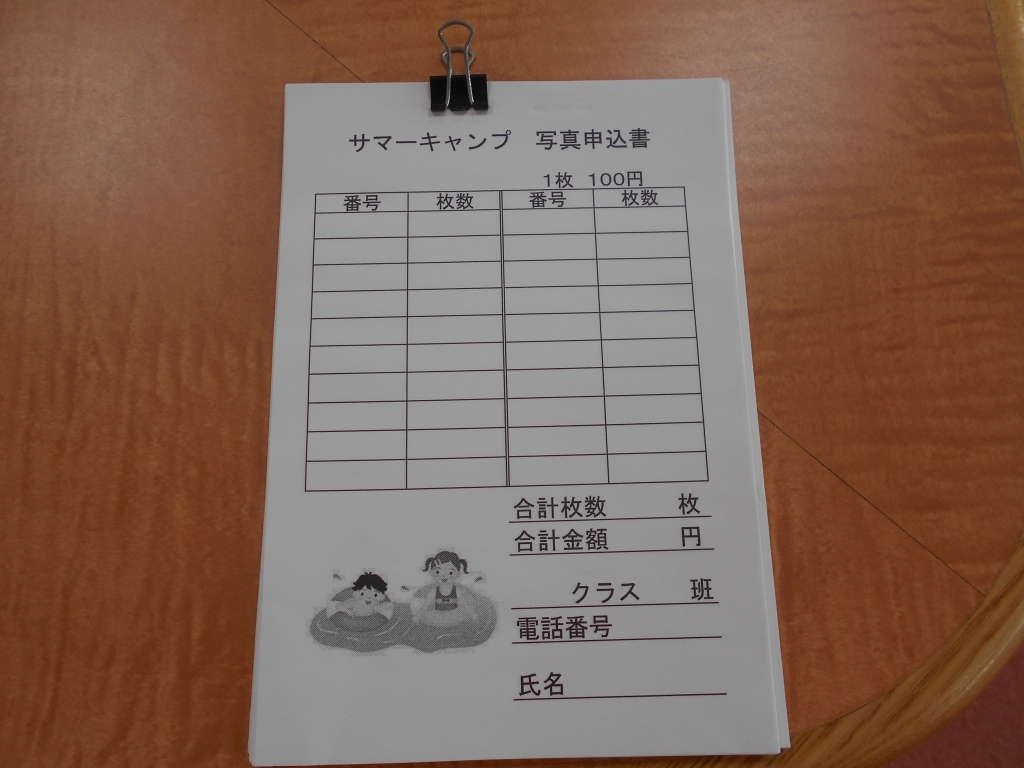 サマーキャンプ　写真申込書
1枚 100円
番号 枚数 番号 枚数
合計枚数 枚
合計金額 円
クラス 班
電話番号
氏名